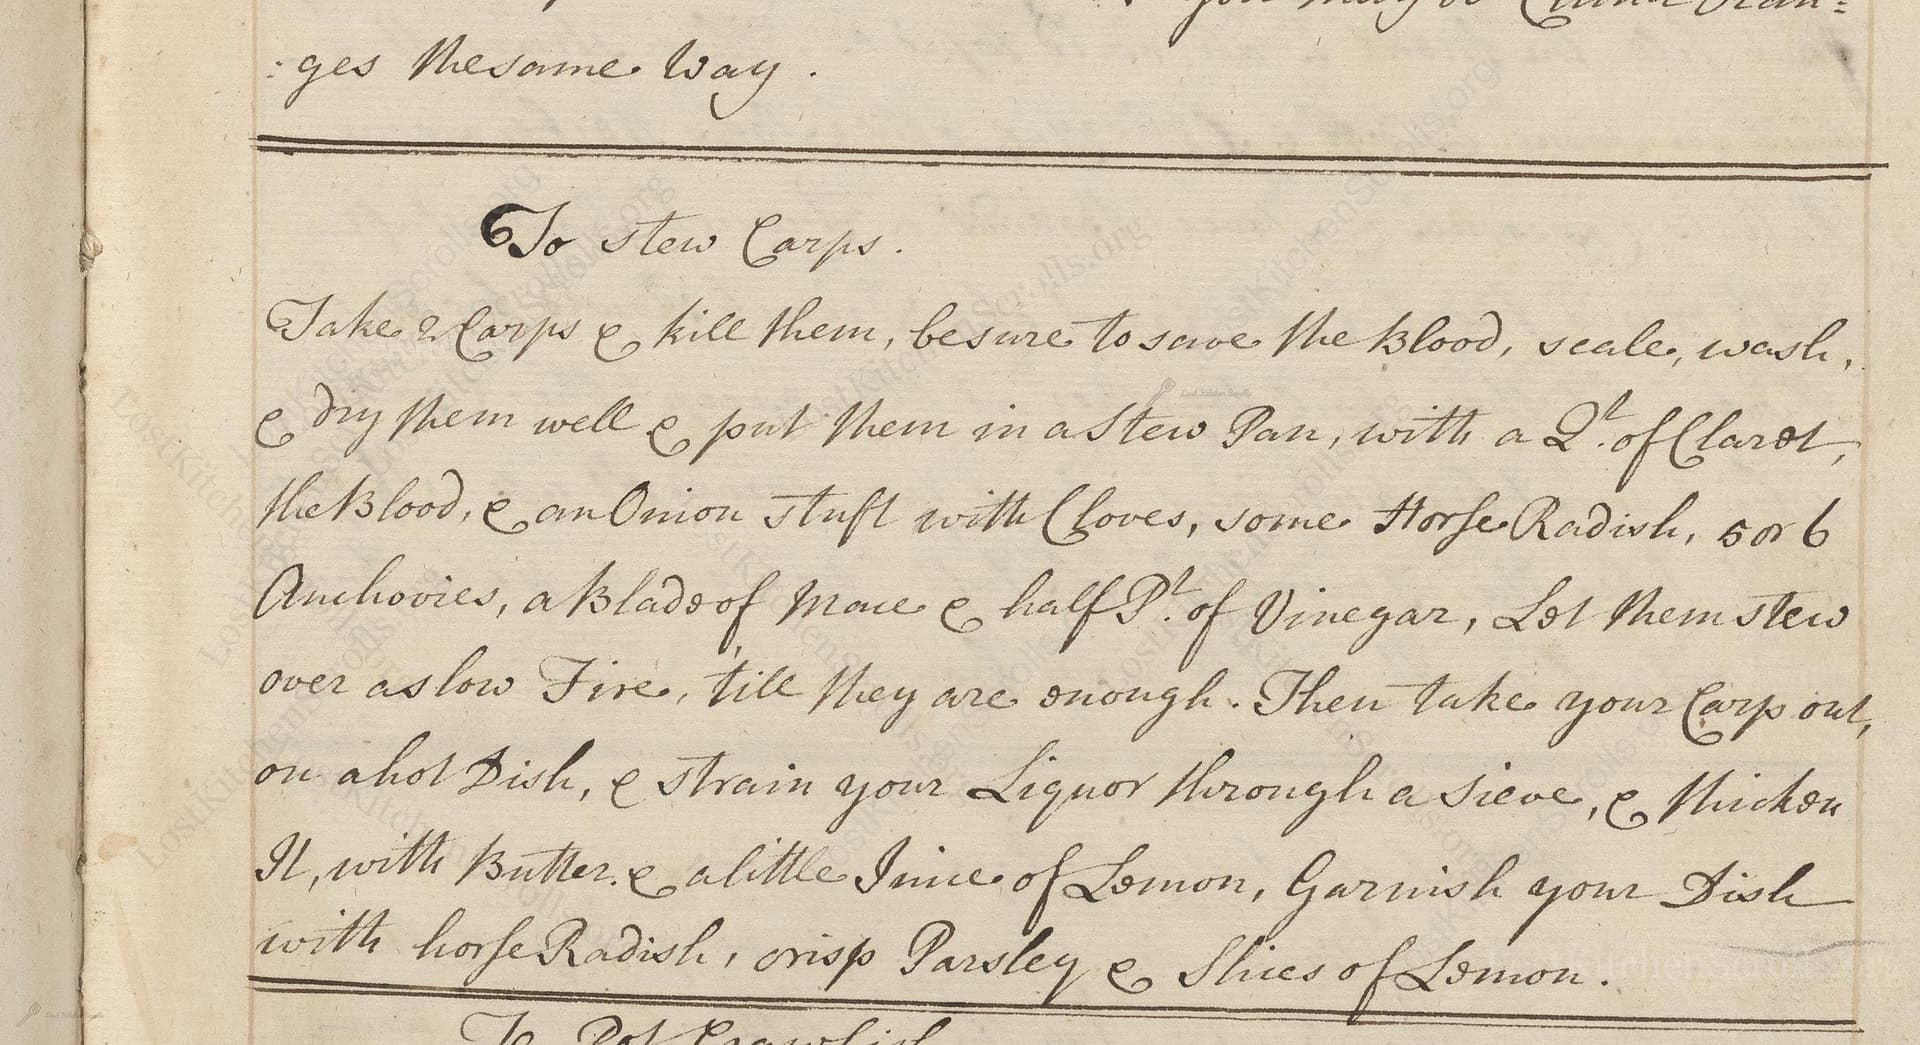 you may do China Oran=
:ges thesame Way.
To stew Carps.
Take 2 Carps & kill them, besure to save the Blood, scale, wash,
& dry them well & put them in a Stew Pan, with a Qt. of Claret,
the Blood, & an Onion stuft with Cloves, some Horse Radish, 5 or 6
Anchovies, a Blade of Mace & half Pt. of Vinegar, Let them stew
over a slow Fire, till they are enough. Then take your Carp out,
on a hot Dish, & strain your Liquor through a Sieve, & thicken
It, with Butter & a little Juice of Lemon, Garnish your Dish
with horse Radish, crisp Parsley & Slices of Lemon.
To Pot Crawfish